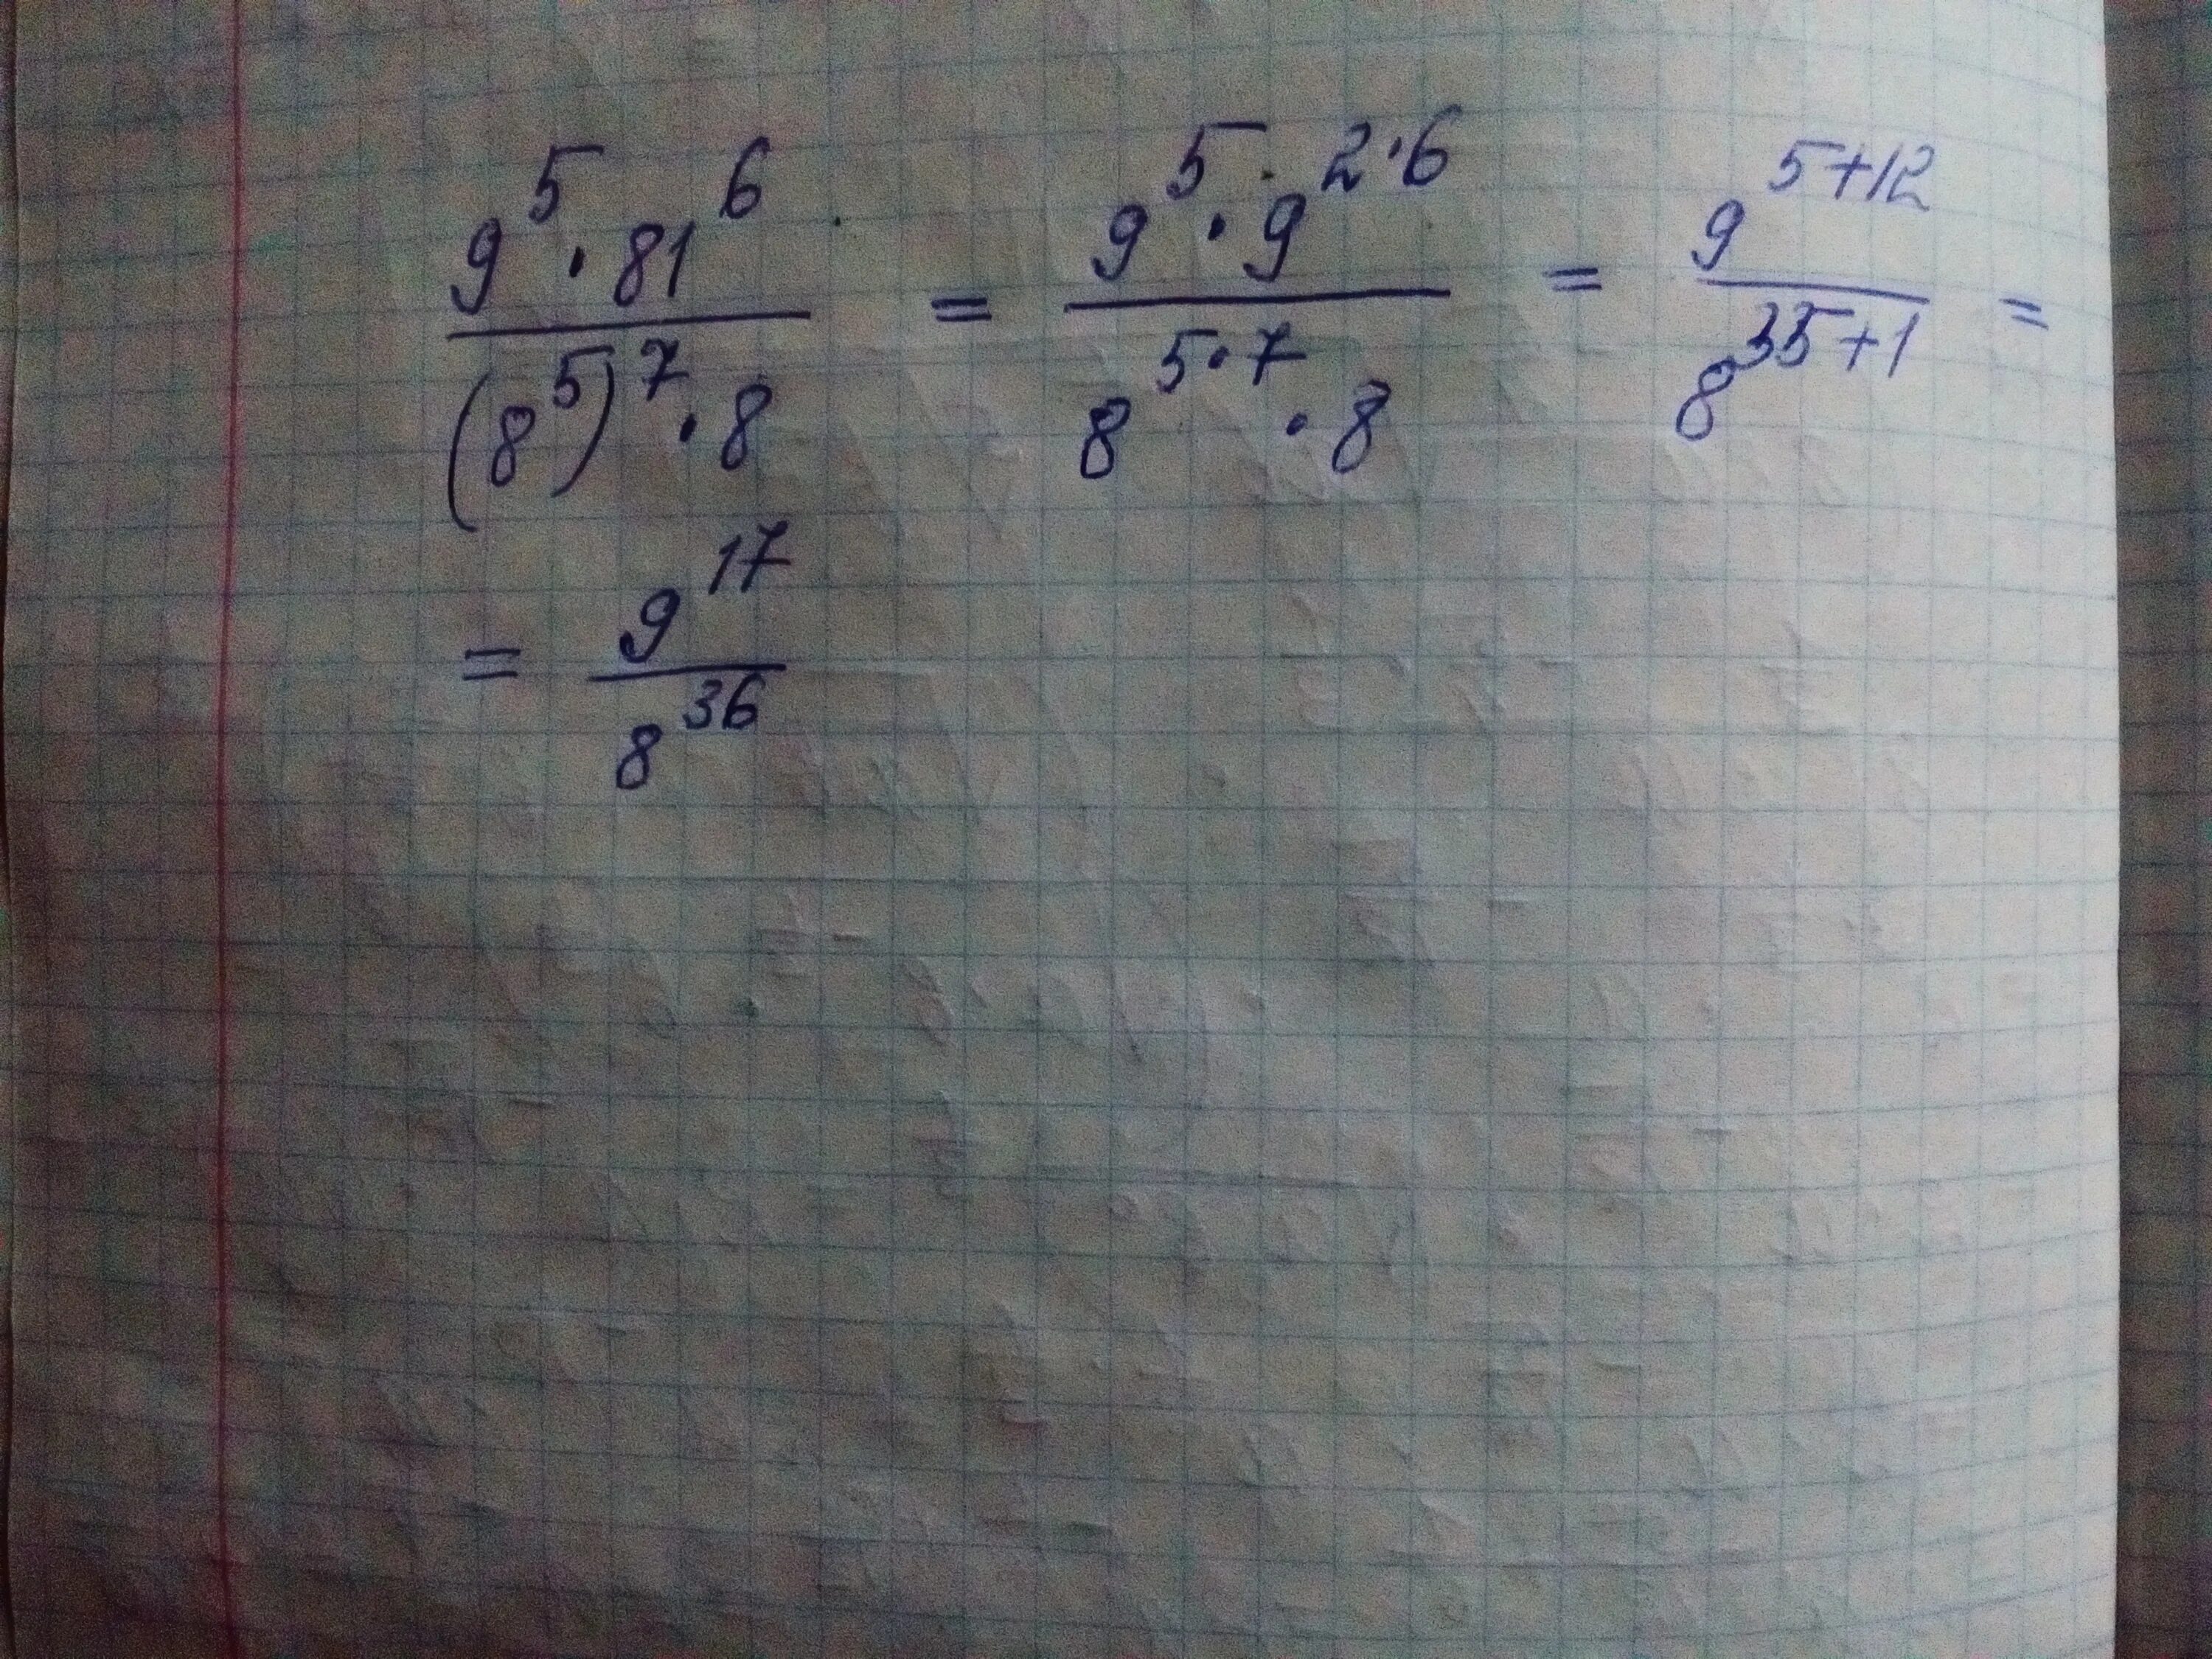 \frac{9^5 \cdot 81^6}{(8^5)^7 \cdot 8} = \frac{9^5 \cdot 9^{2 \cdot 6}}{8^{5 \cdot 7} \cdot 8} = \frac{9^{5+12}}{8^{35+1}} =
= \frac{9^{17}}{8^{36}}